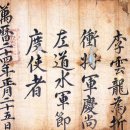 李雲龍為折
衝將軍慶尚
左道水軍節
度使者
萬曆二十四年正月二十五日